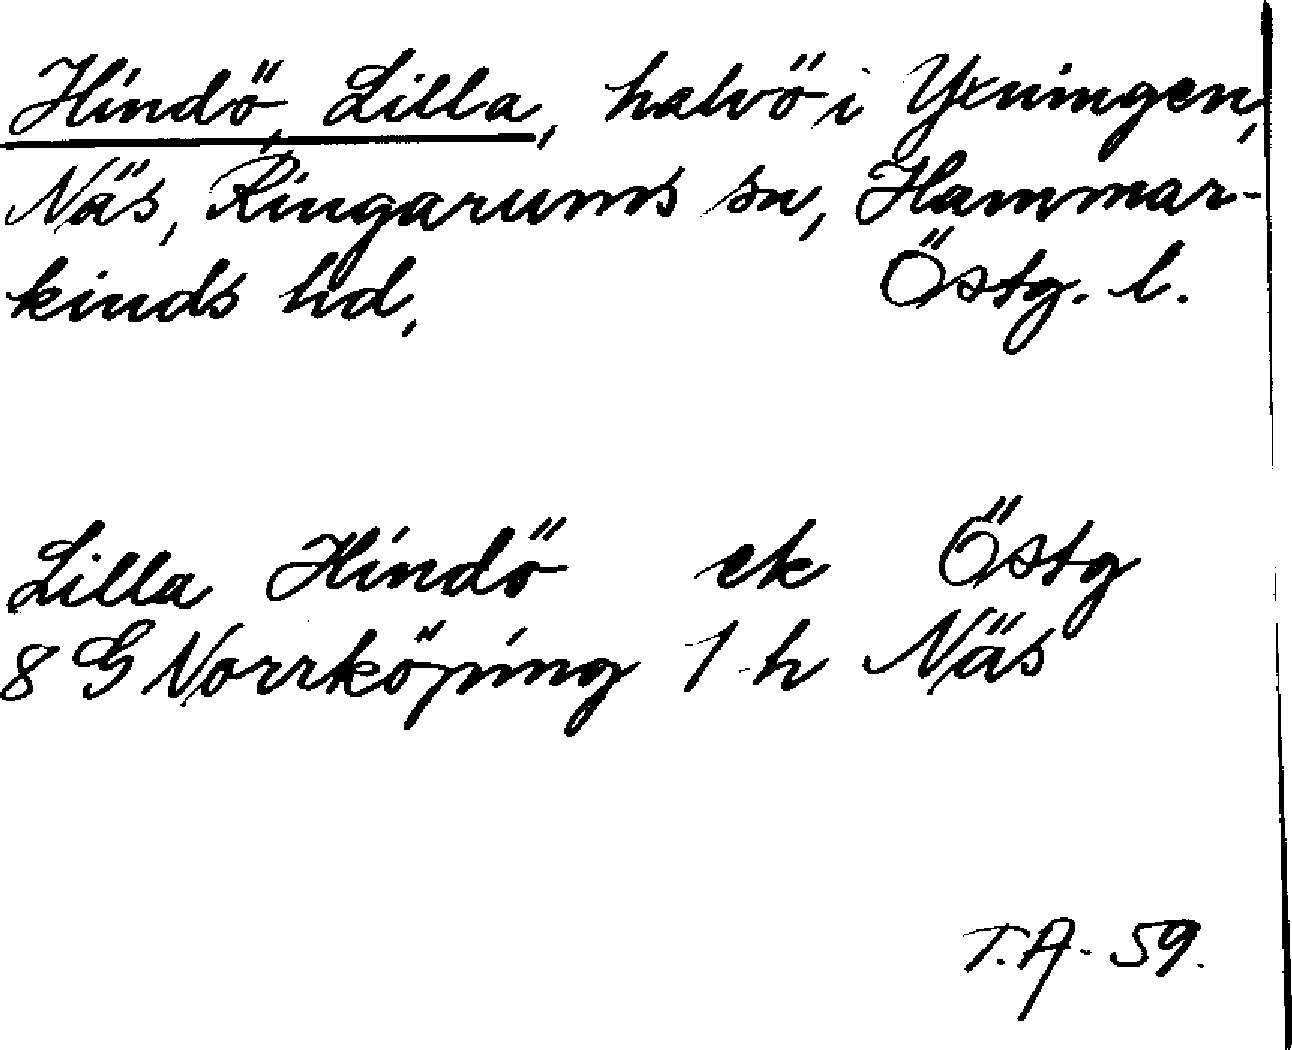 Hindö, Lilla, halvö i Yxningen,
Näs, Ringarums sn, Hammar-
kinds hd, Östg. l.
Lilla Hindö ek Östg
8 G Norrköping 1 h Näs
T.A. 59.